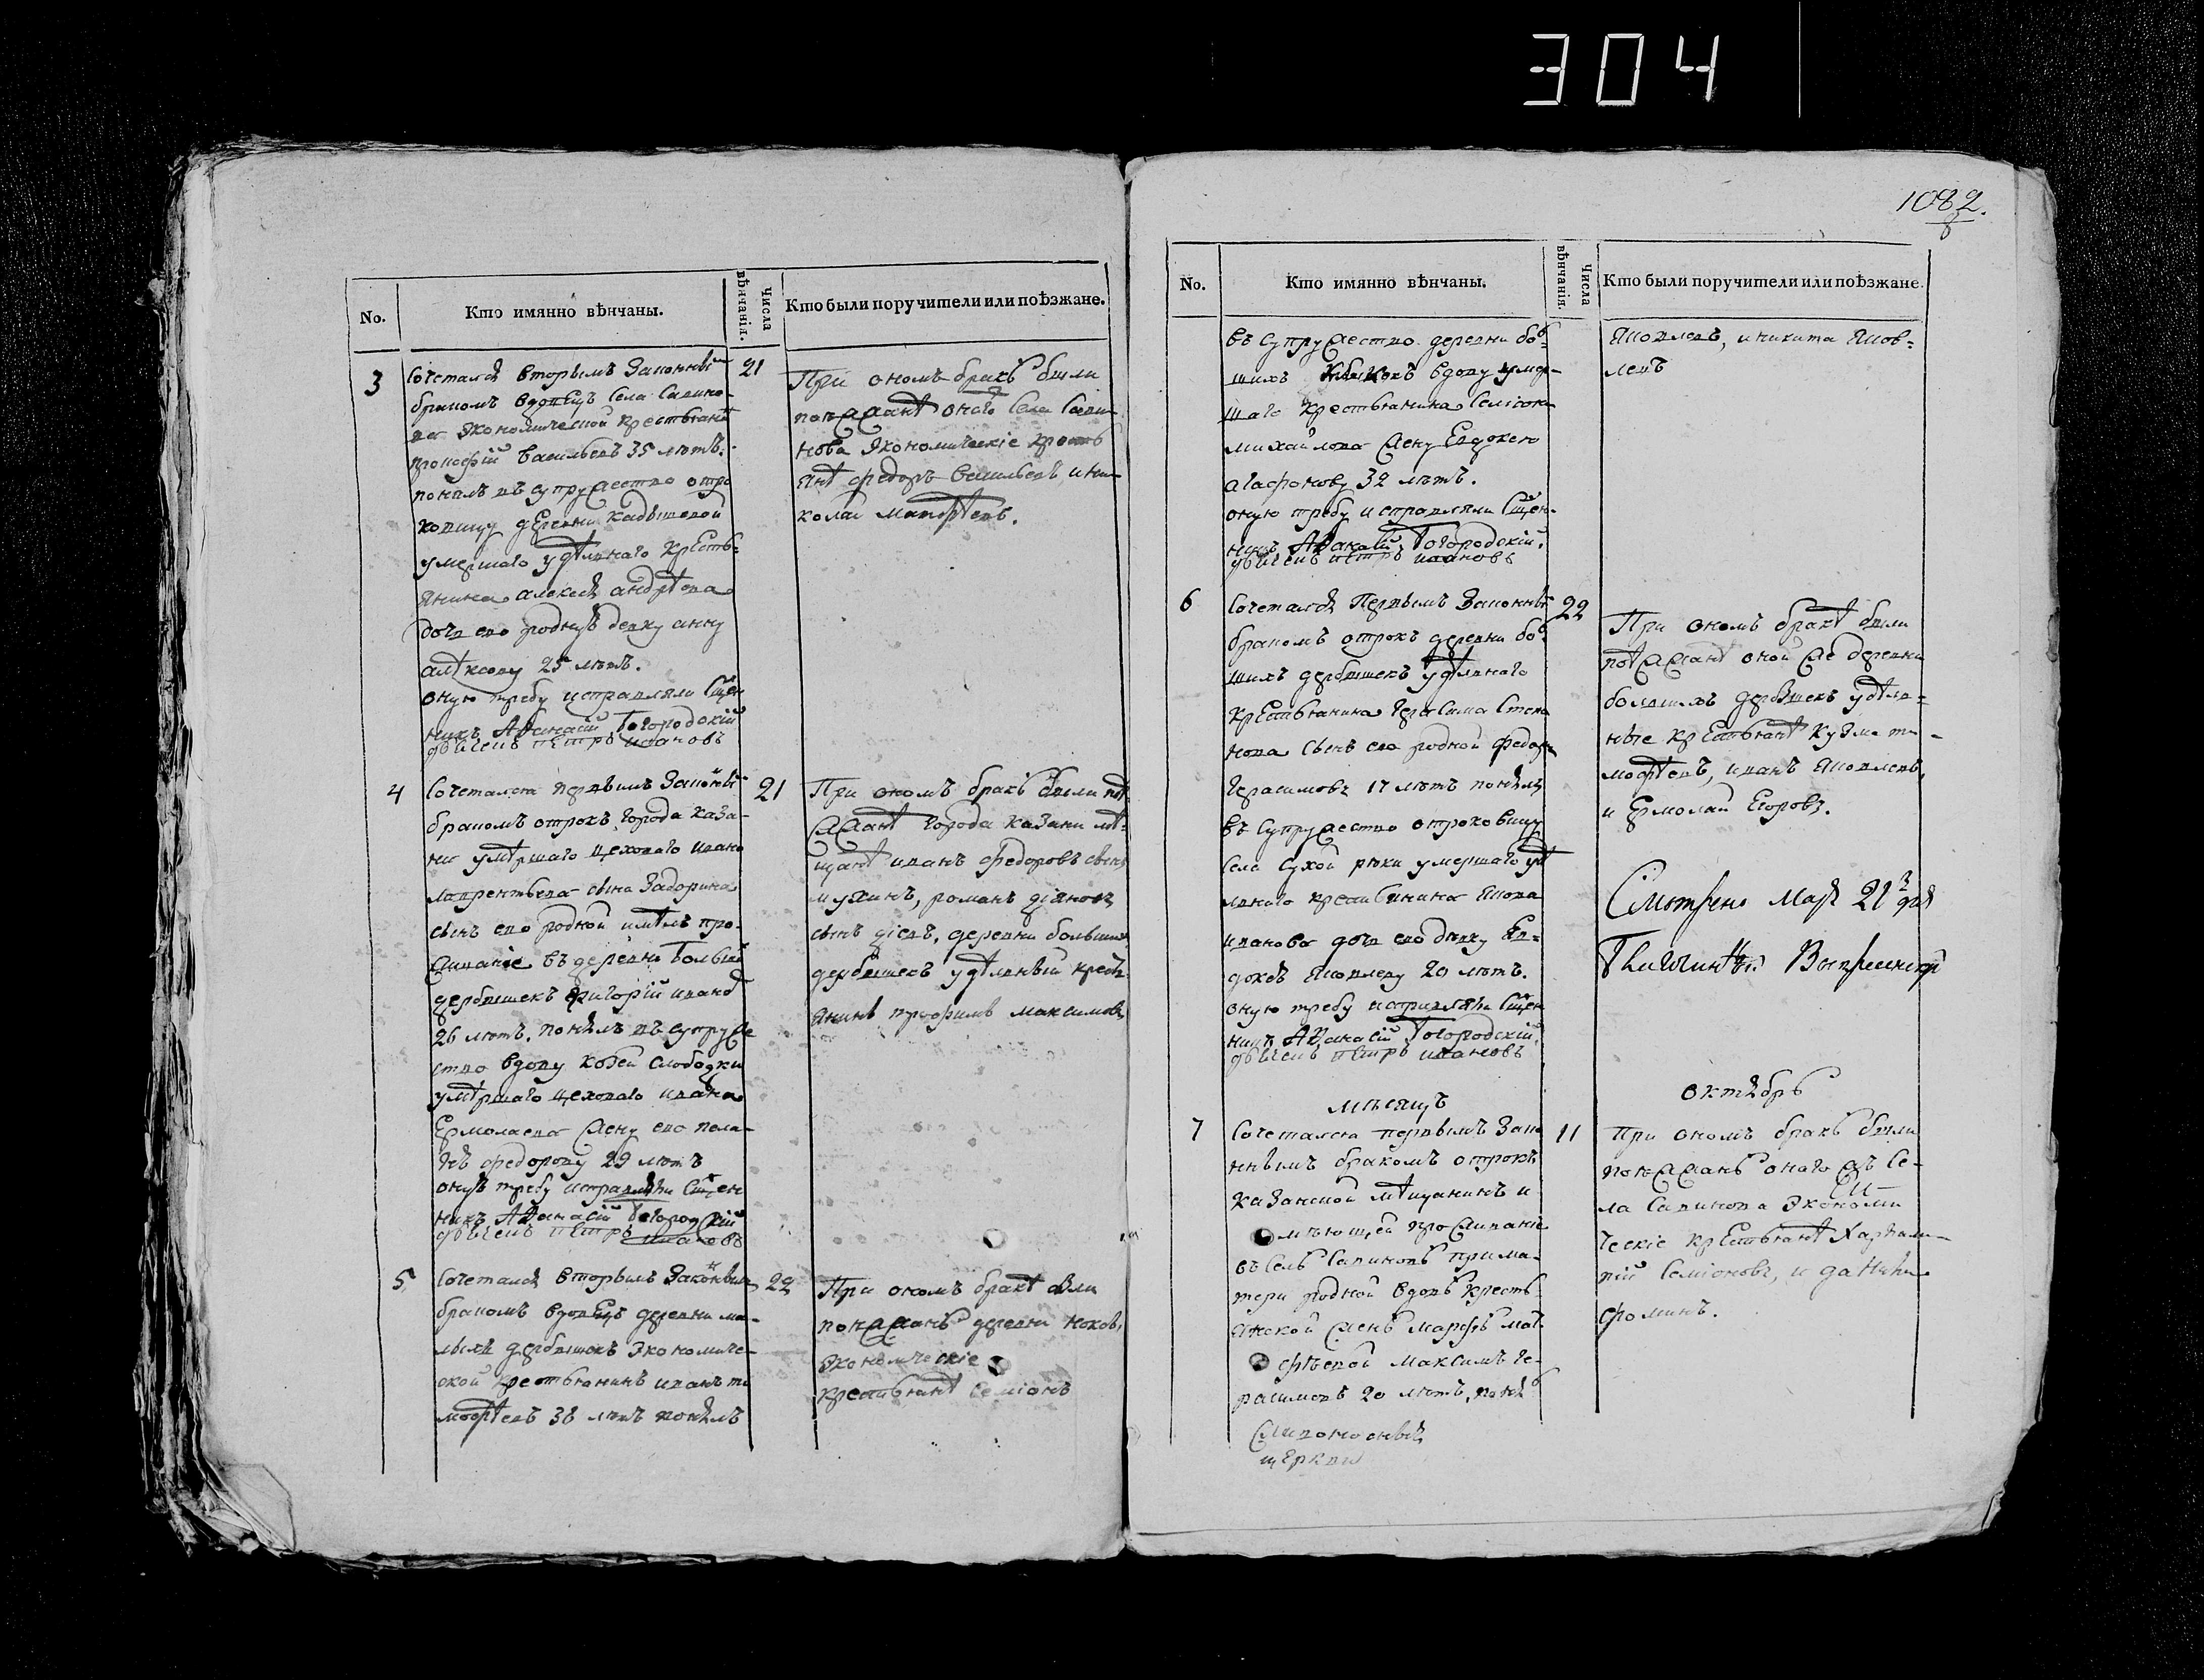 304
1082.
No.
Кто имянно вѣнчаны.
Числа вѣнчанія.
Кто были поручители или поѣзжане.
3
Сочетался вторымъ законны
бракомъ вдовецъ села Савино-
ва экономической крестьянинъ
прокофій васильевъ 35 лѣтъ.
понялъ въ супружество отро
ковицу деревни
умершаго удѣлнаго кресть-
янина алексѣя андрѣева
дочь ево родную девку анну
алѣксѣву 25 лѣтъ.
оную требу исправляли Сщен
никъ Аѳанасій Богородскій
дьячекъ пѣтръ ивановъ
21
При ономъ бракѣ были
поѣжжанѣ онаго села Сави-
нова экономическіе кресть
янѣ федоръ васильевъ и ни-
колай матвѣевъ.
4
Сочетался первымъ законны
бракомъ отрокъ города каза-
ни умѣршаго цеховаго ивана
лаврентьева сына Задорина
сынъ ево родной имѣлъ про-
живаніе въ деревнѣ Больши
дербышекъ григорій ивановъ
26 лѣтъ. понялъ въ супруже
ство вдову козей слободки
умѣршаго цеховаго ивана
Ермолаева жену ево пела-
гѣю федорову 29 лѣтъ
оную требу исправляли Сщен
никъ Аѳанасій Богородскій
дьячекъ пѣтръ ивановъ
21
При ономъ бракѣ были поѣ-
жжанѣ города казани мѣ-
щанѣ иванъ федоровъ сынъ
мухинъ, романъ
сынъ деревни большихъ
дербышекъ удѣлный кресть
янинъ трофимъ максимовъ
5
Сочетался вторымъ законнымъ
бракомъ вдовецъ деревни ма-
лыхъ дербышекъ экономиче-
ской крестьянинъ иванъ ти
мофѣевъ 38 лѣтъ понялъ
22
При ономъ бракѣ были
поѣжжанѣ деревни
экономическіе
крестьянѣ семіонъ
No.
Кто имянно вѣнчаны.
Числа вѣнчанія.
Кто были поручители или поѣзжане.
въ супружество деревни бол-
шихъ вдову умер-
шаго крестьянина Семіона
михайлова жену Евдокею
агафонову 32 лѣтъ.
оную требу исправляли Сщен-
никъ Аѳанасій Богородскій.
дьячекъ пѣтръ ивановъ
Яковлевъ, и никита Яков-
левъ
6
Сочетался Первымъ законны
бракомъ отрокъ деревни бол
шихъ дербышекъ удѣлнаго
крестьянина герасима степа
нова сынъ ево родной федоръ
герасимовъ 17 лѣтъ понялъ
въ супружество отроковицу
села Сухой рѣки умершаго удѣ
лнаго крестьянина Якова
иванова дочь ево дѣвку Ев-
докѣю Яковлеву 20 лѣтъ.
оную требу исправляли Сщен
никъ Аѳанасій Богородскій.
дьячекъ пѣтръ ивановъ
22
При ономъ бракѣ были
поѣжжанѣ оной же деревни
болшихъ дербышекъ удѣлн-
ные крестьянѣ Кузма ти-
мофѣевъ, иванъ Яковлевъ,
и Ермолай Егоровъ.
Смотрено 21 дня
Благочинный Воскресенскій
мѣсяцъ
октябрь
7
Сочетался первымъ зако
ннымъ бракомъ отрокъ
казанской мѣщанинъ и
мѣющей проживаніе
въ селѣ Савиновѣ при ма-
тери родной вдовѣ кресть
янской женѣ марфѣ мат-
фѣевой максимъ ге-
расимовъ 20 лѣтъ, понял
11
При ономъ бракѣ были
поѣжжанѣ онаго жъ се-
ла Савинова экономи
ческіе крестьянѣ
Семіоновъ, и данила
фоминъ.
церкви